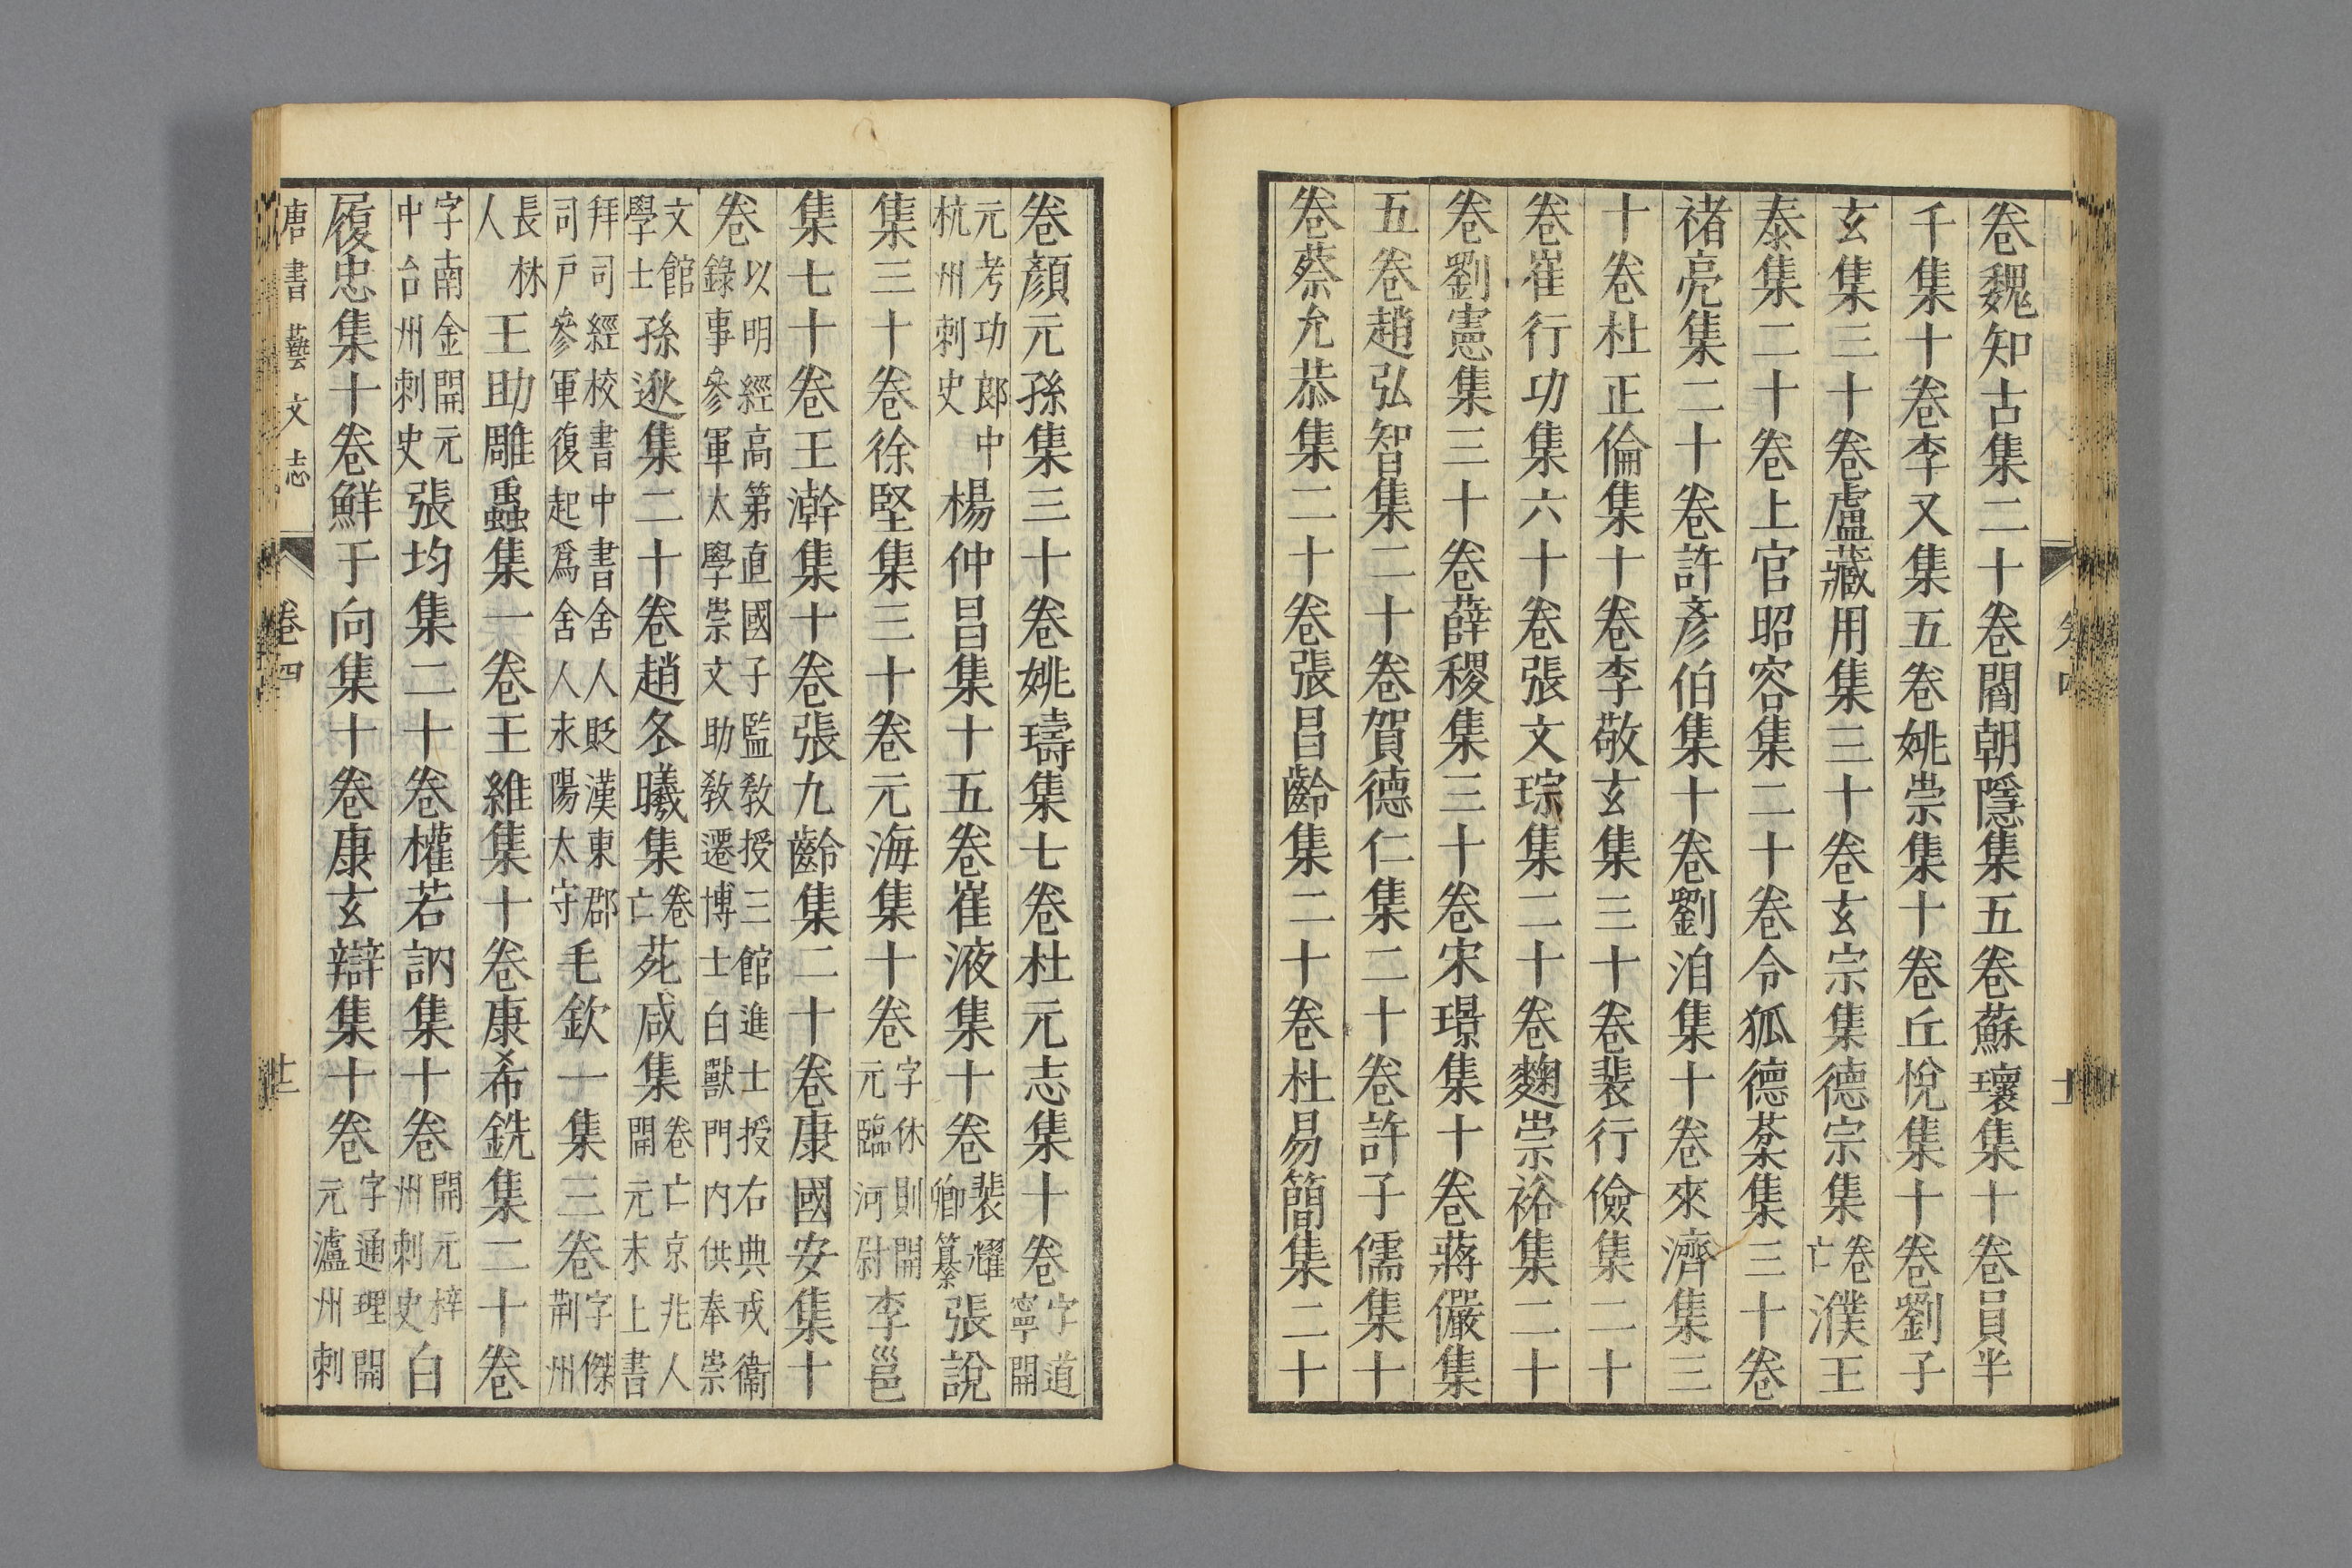 卷魏知古集二十卷閻朝隱集五卷蘇瓌集十卷員半
千集十卷李又集五卷姚崇集十卷丘悅集十卷劉子
玄集三十卷盧藏用集三十卷玄宗集德宗集卷亡濮王
泰集二十卷上官昭容集二十卷令狐德棻集三十卷
褚亮集二十卷許彥伯集十卷劉洎集十卷來濟集三
十卷杜正倫集十卷李敬玄集三十卷裴行儉集二十
卷崔行功集六十卷張文琮集二十卷麴崇裕集二十
卷劉憲集三十卷薛稷集三十卷宋璟集十卷蔣儼集
五卷趙弘智集二十卷賀德仁集二十卷許子儒集十
卷蔡允恭集二十卷張昌齡集二十卷杜易簡集二十
卷顏元孫集三十卷姚璹集七卷杜元志集十卷字道寧開
元考功郎中杭州刺史楊仲昌集十五卷崔液集十卷裴耀卿纂張說
集三十卷徐堅集三十卷元海集十卷字休則開元臨河尉李邕
集七十卷王澣集十卷張九齡集二十卷康國安集十
卷以明經高第直國子監敎授三館進士授右典戎衞錄事參軍太學崇文助敎遷博士白獸門內供奉崇
文館學士孫逖集二十卷趙冬曦集卷亡苑咸集卷亡京兆人開元末上書
拜司經校書中書舍人貶漢東郡司戶參軍復起爲舍人末陽太守毛欽一集三卷字傑荊州
長林人王助雕蟲集一卷王維集十卷康希銑集二十卷
字南金開元中台州刺史張均集二十卷權若訥集十卷開元梓州刺史白
履忠集十卷鮮于向集十卷康玄辯集十卷字通理開元瀘州刺
唐書藝文志 卷四 十二